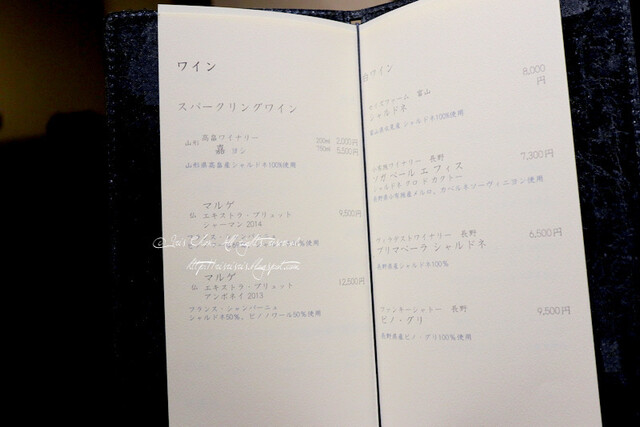 ワイン
スパークリングワイン
山形 高畠ワイナリー
嘉 ヨン
200ml 2,000円
750ml 5,500円
山形県高畠産シャルドネ100%使用
マルゲ
仏 エキストラ・ブリュット 9,500円
シャーマン 2014
フランス・シャンパーニュ
マルゲ
仏 エキストラ・ブリュット 12,500円
アンボネイ 2013
フランス・シャンパーニュ
シャルドネ50%、ピノノワール50%使用
白ワイン
セイズファーム 富山 8,000円
シャルドネ
富山県氷見産 シャルドネ100%使用
小布施ワイナリー 長野 7,300円
ソガ ペール エ フィス
長野県小布施産メルロ、カベルネソーヴィニヨン使用
ヴィラデストワイナリー 長野 6,500円
プリマベーラ シャルドネ
長野県産シャルドネ100%
ファンキーシャトー 長野 9,500円
ピノ・グリ
長野県産ピノ・グリ100%使用